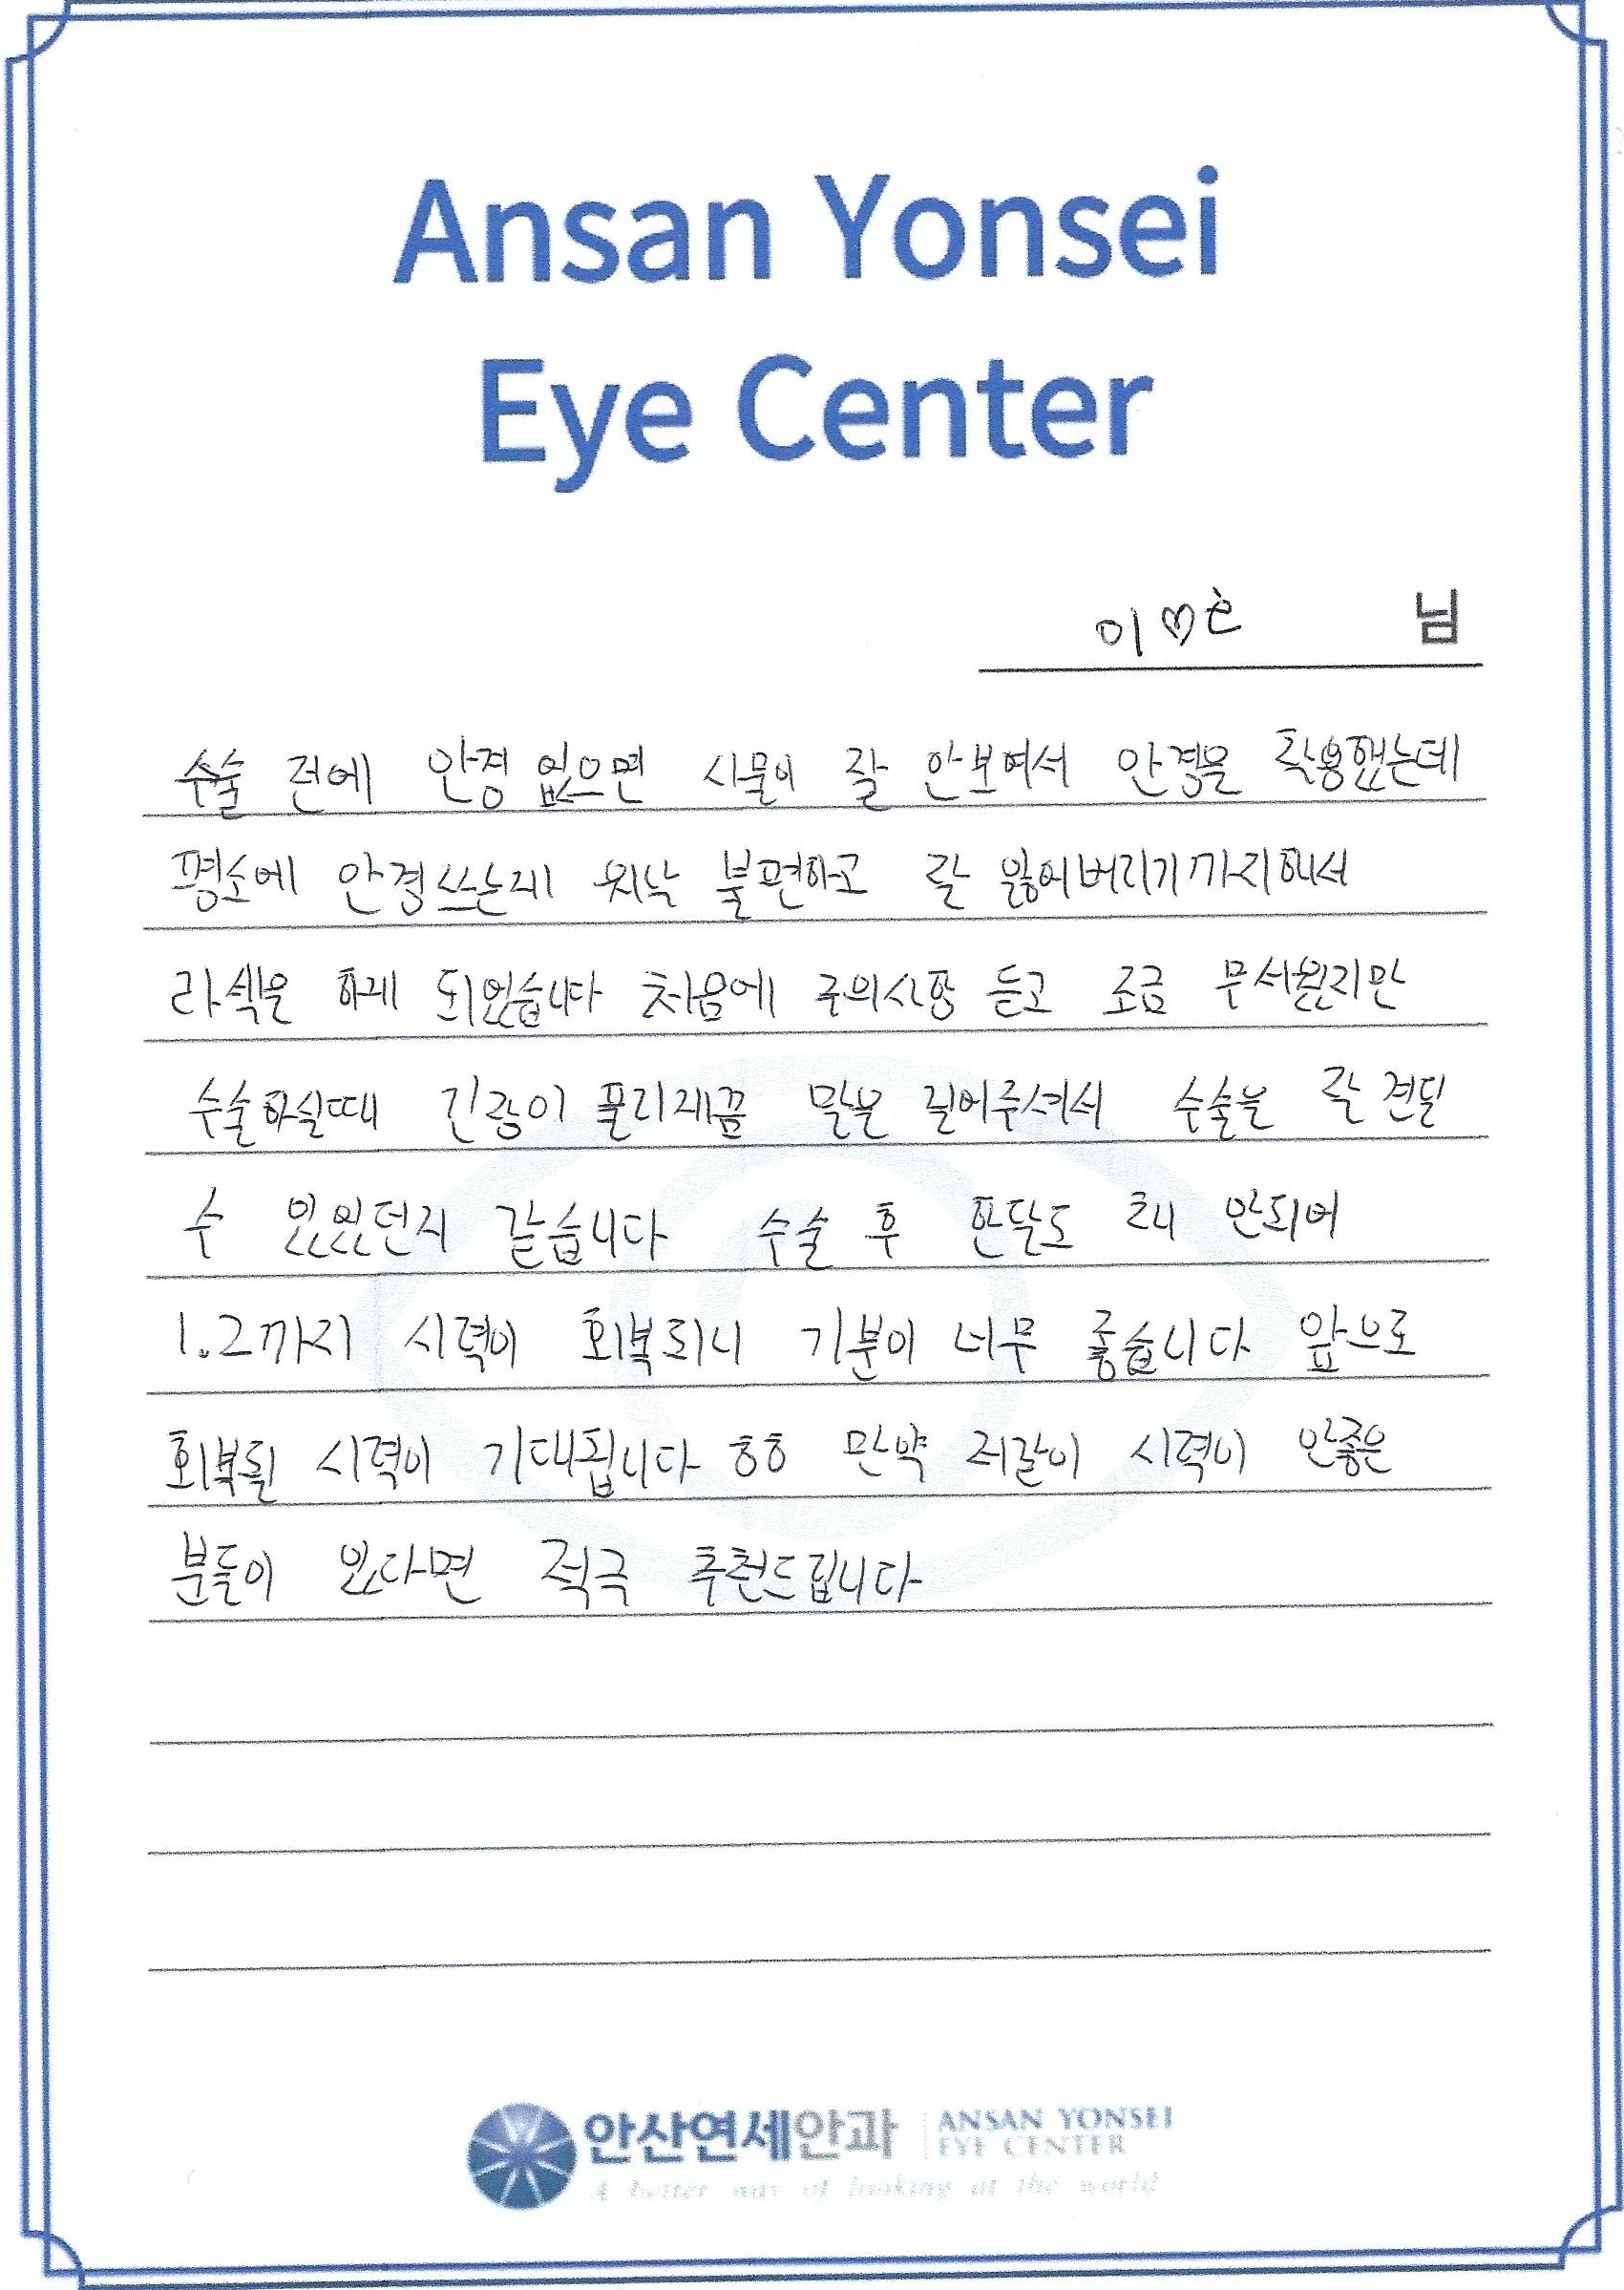 Ansan Yonsei
Eye Center
이♡호 님
수술 전에 안경 없으면 시물이 잘 안보여서 안경을 착용했는데
평소에 안경쓰는게 워낙 불편하고 잘 잃어버리기까지해서
라섹을 하게 되었습니다 처음에 주의사항 듣고 조금 무서웠지만
수술하실때 긴장이 풀리게끔 말을 걸어주셔서 수술을 잘 견딜
수 있었던거 같습니다 수술 후 한달도 채 안되어
1.2까지 시력이 회복되니 기분이 너무 좋습니다 앞으로
회복될 시력이 기대됩니다 ㅎㅎ 만약 저같이 시력이 안좋은
분들이 있다면 적극 추천드립니다
안산연세안과 ANSAN YONSEI
EYE CENTER
A better way of looking at the world